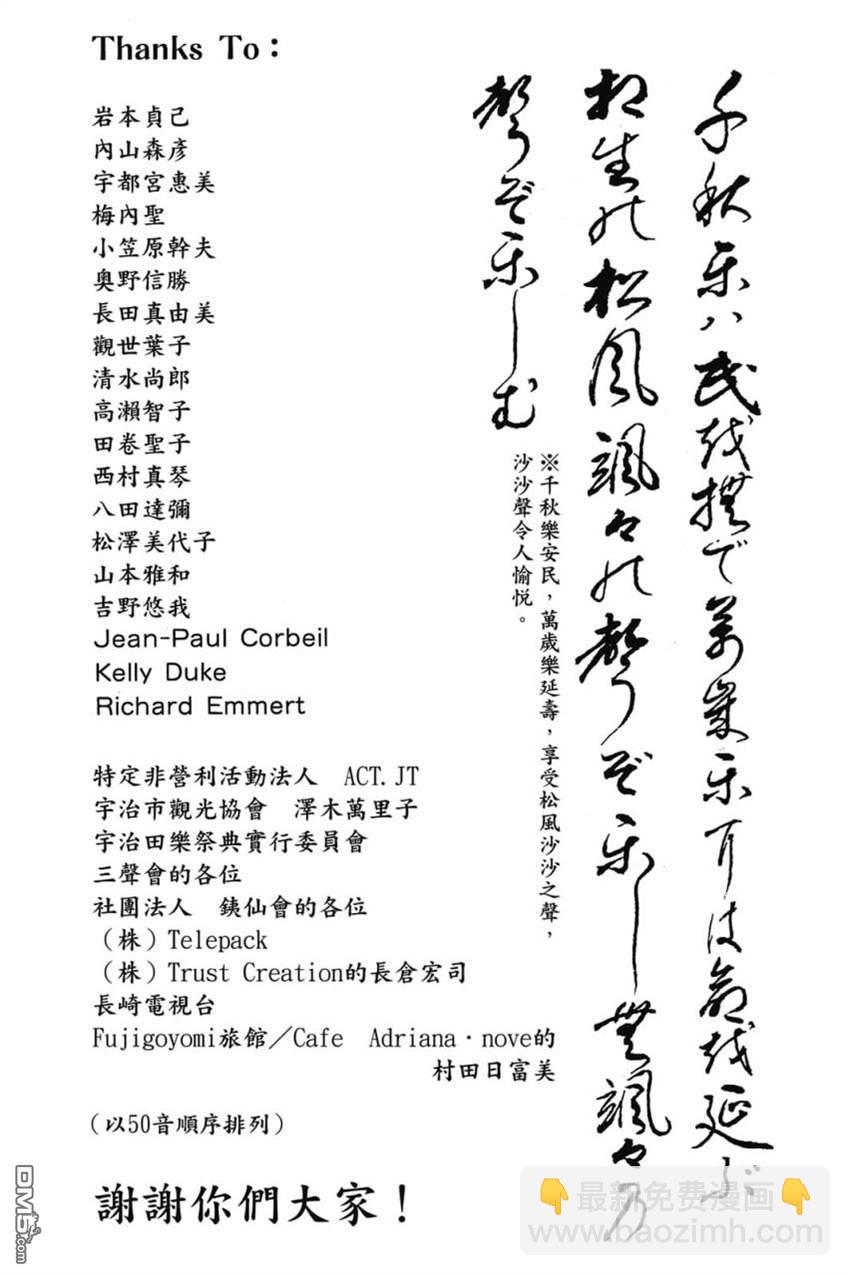 Thanks To：
岩本貞己
內山森彥
宇都宮惠美
梅內聖
小笠原幹夫
奧野信勝
長田真由美
觀世葉子
清水尚郎
高瀨智子
田卷聖子
西村真琴
八田達彌
松澤美代子
山本雅和
吉野悠我
Jean-Paul Corbeil
Kelly Duke
Richard Emmert
特定非營利活動法人　ACT.JT
宇治市觀光協會　澤木萬里子
宇治田樂祭典實行委員會
三聲會的各位
社團法人　銕仙會的各位
（株）Telepack
（株）Trust Creation的長倉宏司
長崎電視台
Fujigoyomi旅館／Cafe　Adriana・nove的
村田日富美
（以50音順序排列）
謝謝你們大家！
千秋乐ハ民越撫で萬歳乐尓は命越延ぶ
相生能松風颯々能聲ぞ乐し無颯々乃
聲ぞ乐しむ
※千秋樂安民，萬歲樂延壽，享受松風沙沙之聲，
沙沙聲令人愉悅。
最新免費漫画
www.baozimh.com
DM5.com